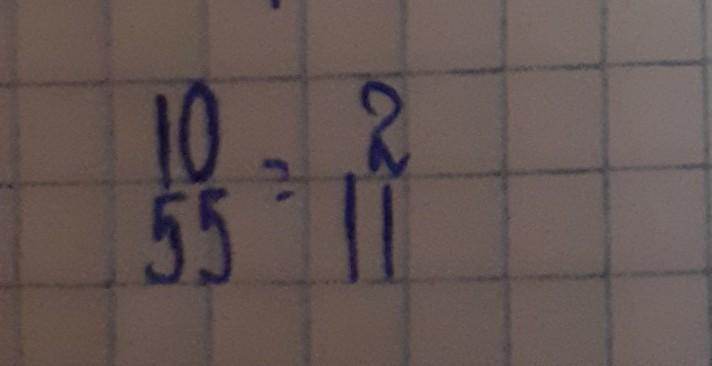 10/55 = 2/11